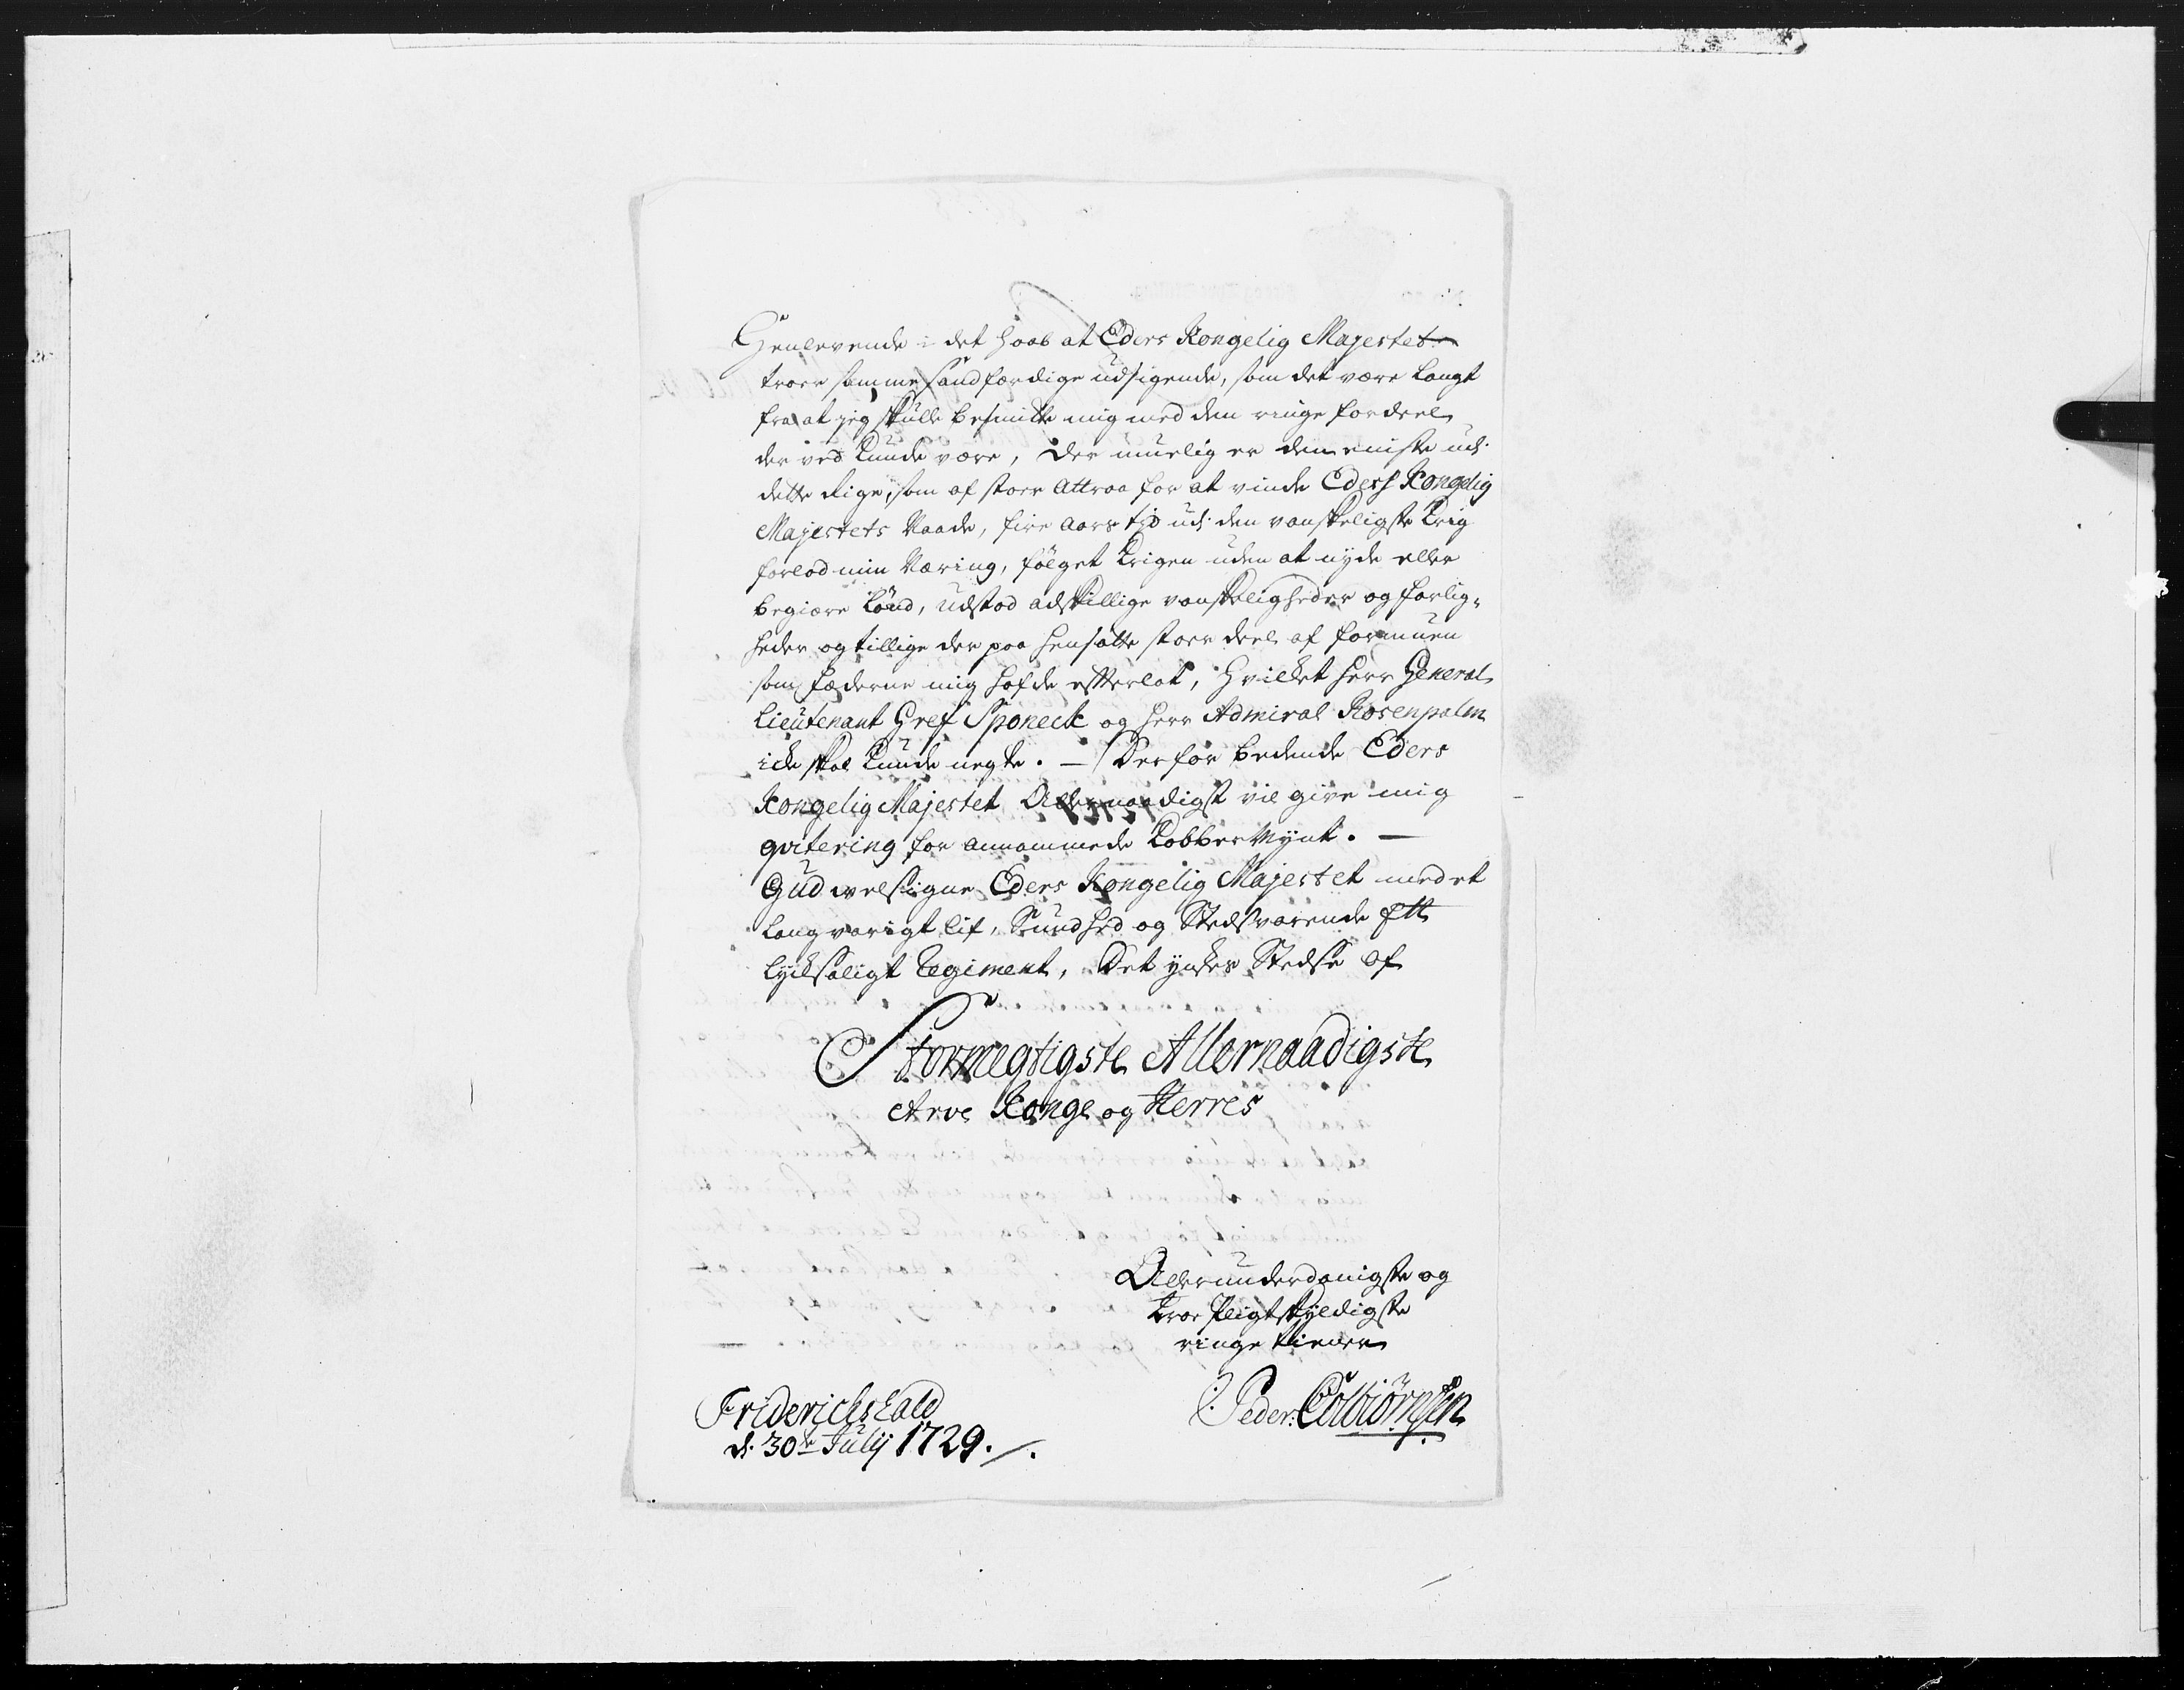 Henlevende i det Haab at Eders Kongelig Majestet
troer samme sandferdige udsigende, som det være langt
fra at jeg skulle besmitte mig med den ringe fordeel
der ved kunde være, der muelig er den eniste udi
dette Rige, som af stoer attraa for at vinde Eders Kongelig
Majestets Naade, fire Aars tid udi den vanskeligste Krig
forlod min Næring, følget Krigen uden at nyde eller
begiære Lønd, udstod adskillige vanskeligheder og farlig-
heder og tillige der paa hensatte stoer deel af formuen
som fæderne mig hafde efterlat, Hvilket Herr General
Lieutenant Gref Sponeck og Herr Admiral Rosenpalm
icke skal kunde negte. — Derfor bedende Eders
Kongelig Majestet Allernaadigst vil give mig
qvitering for annammede Kobber Mynt. —
Gud velsigne Eders Kongelig Majestet med et
langvarigt lif, Sundhed og Stedsvarende Ett
lycksaligt Regiment, Det ynsker Stedse af
Stormegtigste Allernaadigste
Arve Konge og Herres
Allerunderdanigste og
troe Pligtskyldigste
ringe tienere
Peder Colbiørnsen
Friderichshald
d. 30te Julij 1729.